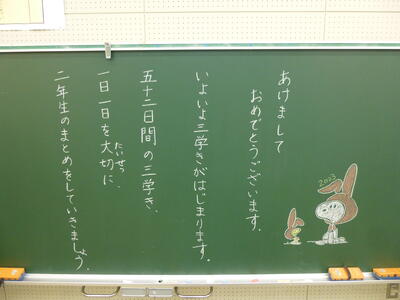 あけまして
おめでとうございます。
いよいよ三学きがはじまります。
五十二日間の三学き、
一日一日を大切に、
たいせつ
二年生のまとめをしていきましょう。
2023